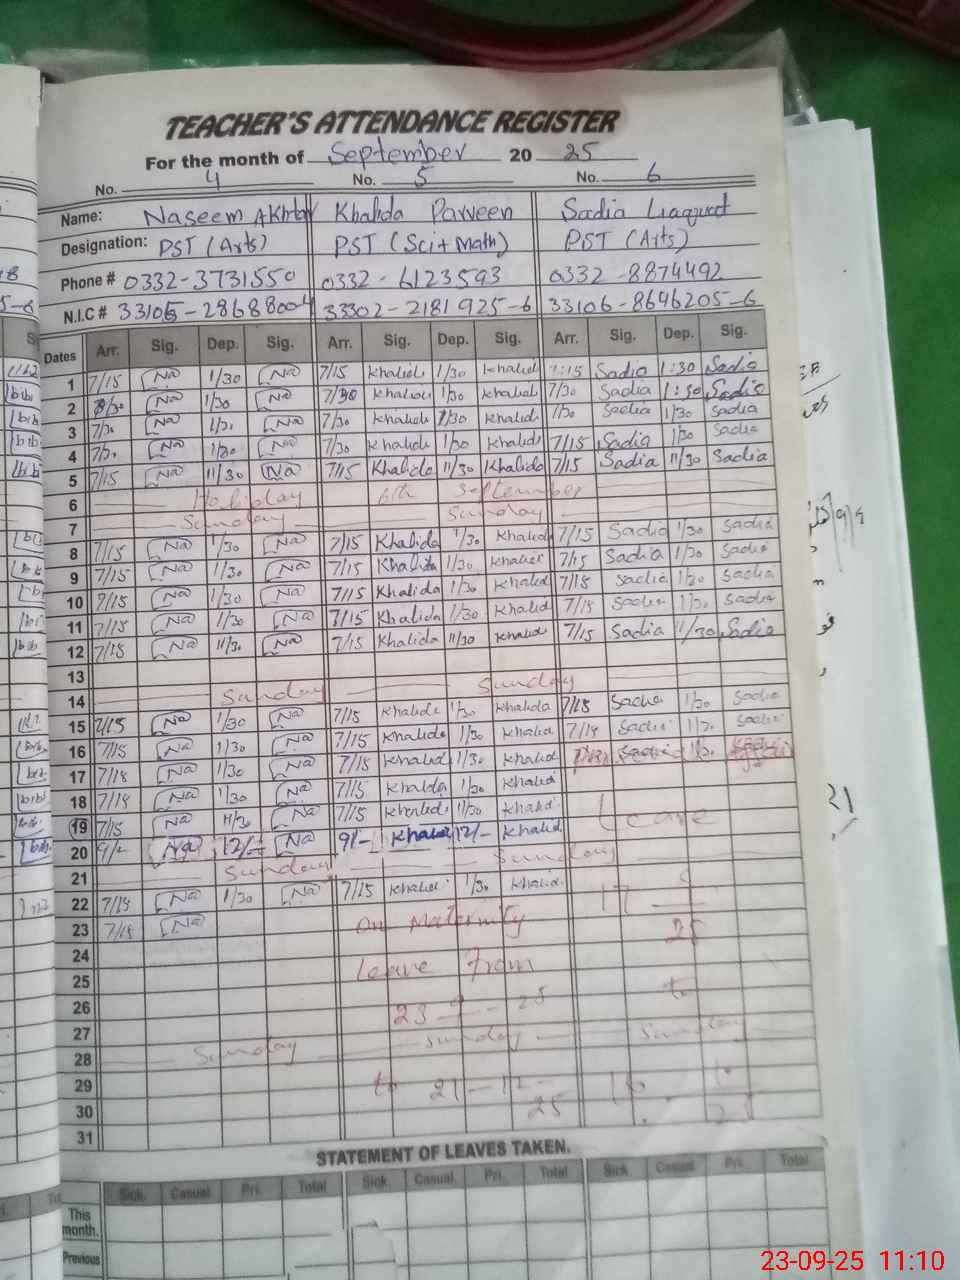 TEACHER'S ATTENDANCE REGISTER
For the month of September 20 25
No. 4 No. 5 No. 6
Name: Naseem Akhtar Khalida Parveen Sadia Liaquat
Designation: PST (Arts) PST (Sci+Math) PST (Arts)
Phone # 0332-3731550 0332-6123593 0332-8874492
N.I.C # 33105-2868800-4 33302-2181925-6 33106-8646205-6
Dates Arr. Sig. Dep. Sig. Arr. Sig. Dep. Sig. Arr. Sig. Dep. Sig.
1 7/15 Na 1/30 Na 7/15 Khalida 1/30 Khalida 7:15 Sadia 1:30 Sadia
2 Na 1/30 Na 7/30 Khalida 1/30 Khalida 7/30 Sadia 1:30 Sadia
3 7/30 Na Na 7/30 Khalida 1/30 Khalida Sadia 1/30 Sadia
4 Na 1/30 Na 7/30 Khalida 1/30 Khalida 7/15 Sadia 1/30 Sadia
5 7/15 Na 11/30 Na 7/15 Khalida 11/30 Khalida 7/15 Sadia 11/30 Sadia
6 Holiday 6th September
7 Sunday Sunday
8 7/15 Na 1/30 Na 7/15 Khalida 1/30 Khalida 7/15 Sadia 1/30 Sadia
9 7/15 Na 1/30 Na 7/15 Khalida 1/30 Khalida 7/15 Sadia 1/30 Sadia
10 7/15 Na 1/30 Na 7/15 Khalida 1/30 Khalid 7/15 Sadia 1/30 Sadia
11 7/15 Na 1/30 Na 7/15 Khalida 1/30 Khalid 7/15 Sadia 1/30 Sadia
12 7/15 Na 11/30 Na 7/15 Khalida 11/30 Khalid 7/15 Sadia 11/30 Sadia
13
14 Sunday Sunday
15 7/15 Na 1/30 Na 7/15 Khalida 1/30 Khalida 7/15 Sadia 1/30 Sadia
16 7/15 Na 1/30 Na 7/15 Khalida 1/30 Khalida 7/15 Sadia 1/30 Sadia
17 7/15 Na 1/30 Na 7/15 Khalida 1/30 Khalid
18 7/15 Na 1/30 Na 7/15 Khalda 1/30 Khalid
19 7/15 Na 11/30 Na 7/15 Khalida 11/30 Khalid Leave
20 9/- Na 12/- Na 9/- Khalid 12/- Khalid
21 Sunday Sunday
22 7/15 Na 1/30 Na 7/15 Khalid 1/30 Khalid 17 9
23 7/15 Na On Maternity 25
24
25 Leave From
26 23-9-25 to
27
28 Sunday Sunday Sunday
29 to 21-12-25
30
31
STATEMENT OF LEAVES TAKEN.
Sick. Casual. Pri. Total Sick. Casual. Pri. Total Sick Casual. Pri. Total
This month.
Previous
23-09-25 11:10